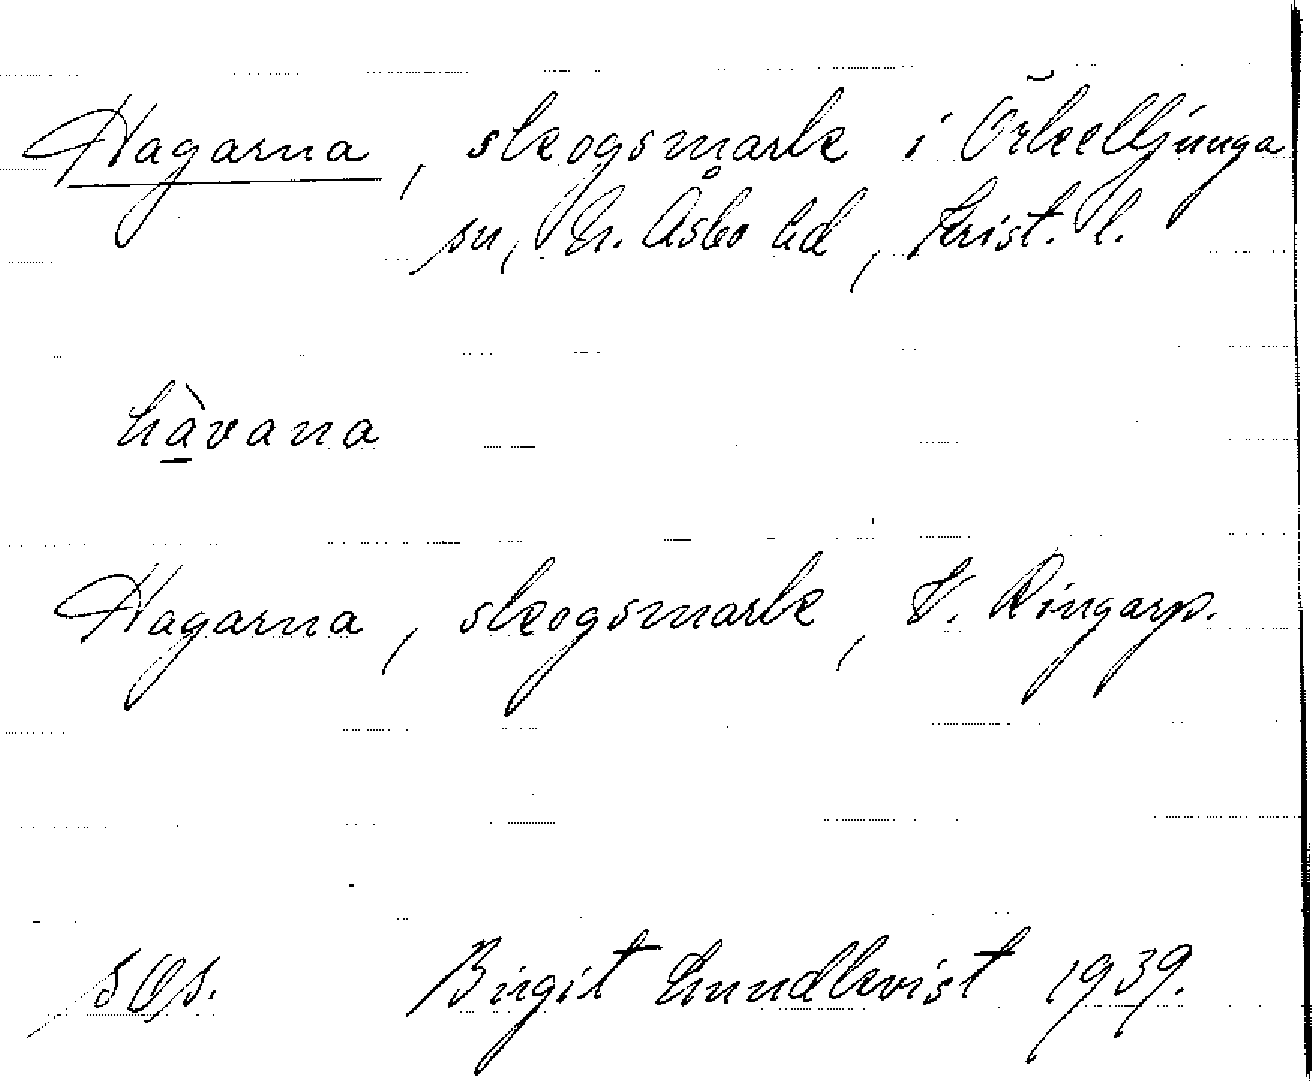 Hagarna, skogsmark i Örkelljunga
sn, N. Åsbo hd, Krist. l.
hàvana
Hagarna, skogsmark, V. Ringarp.
sOs. Birgit Lundkvist 1939.